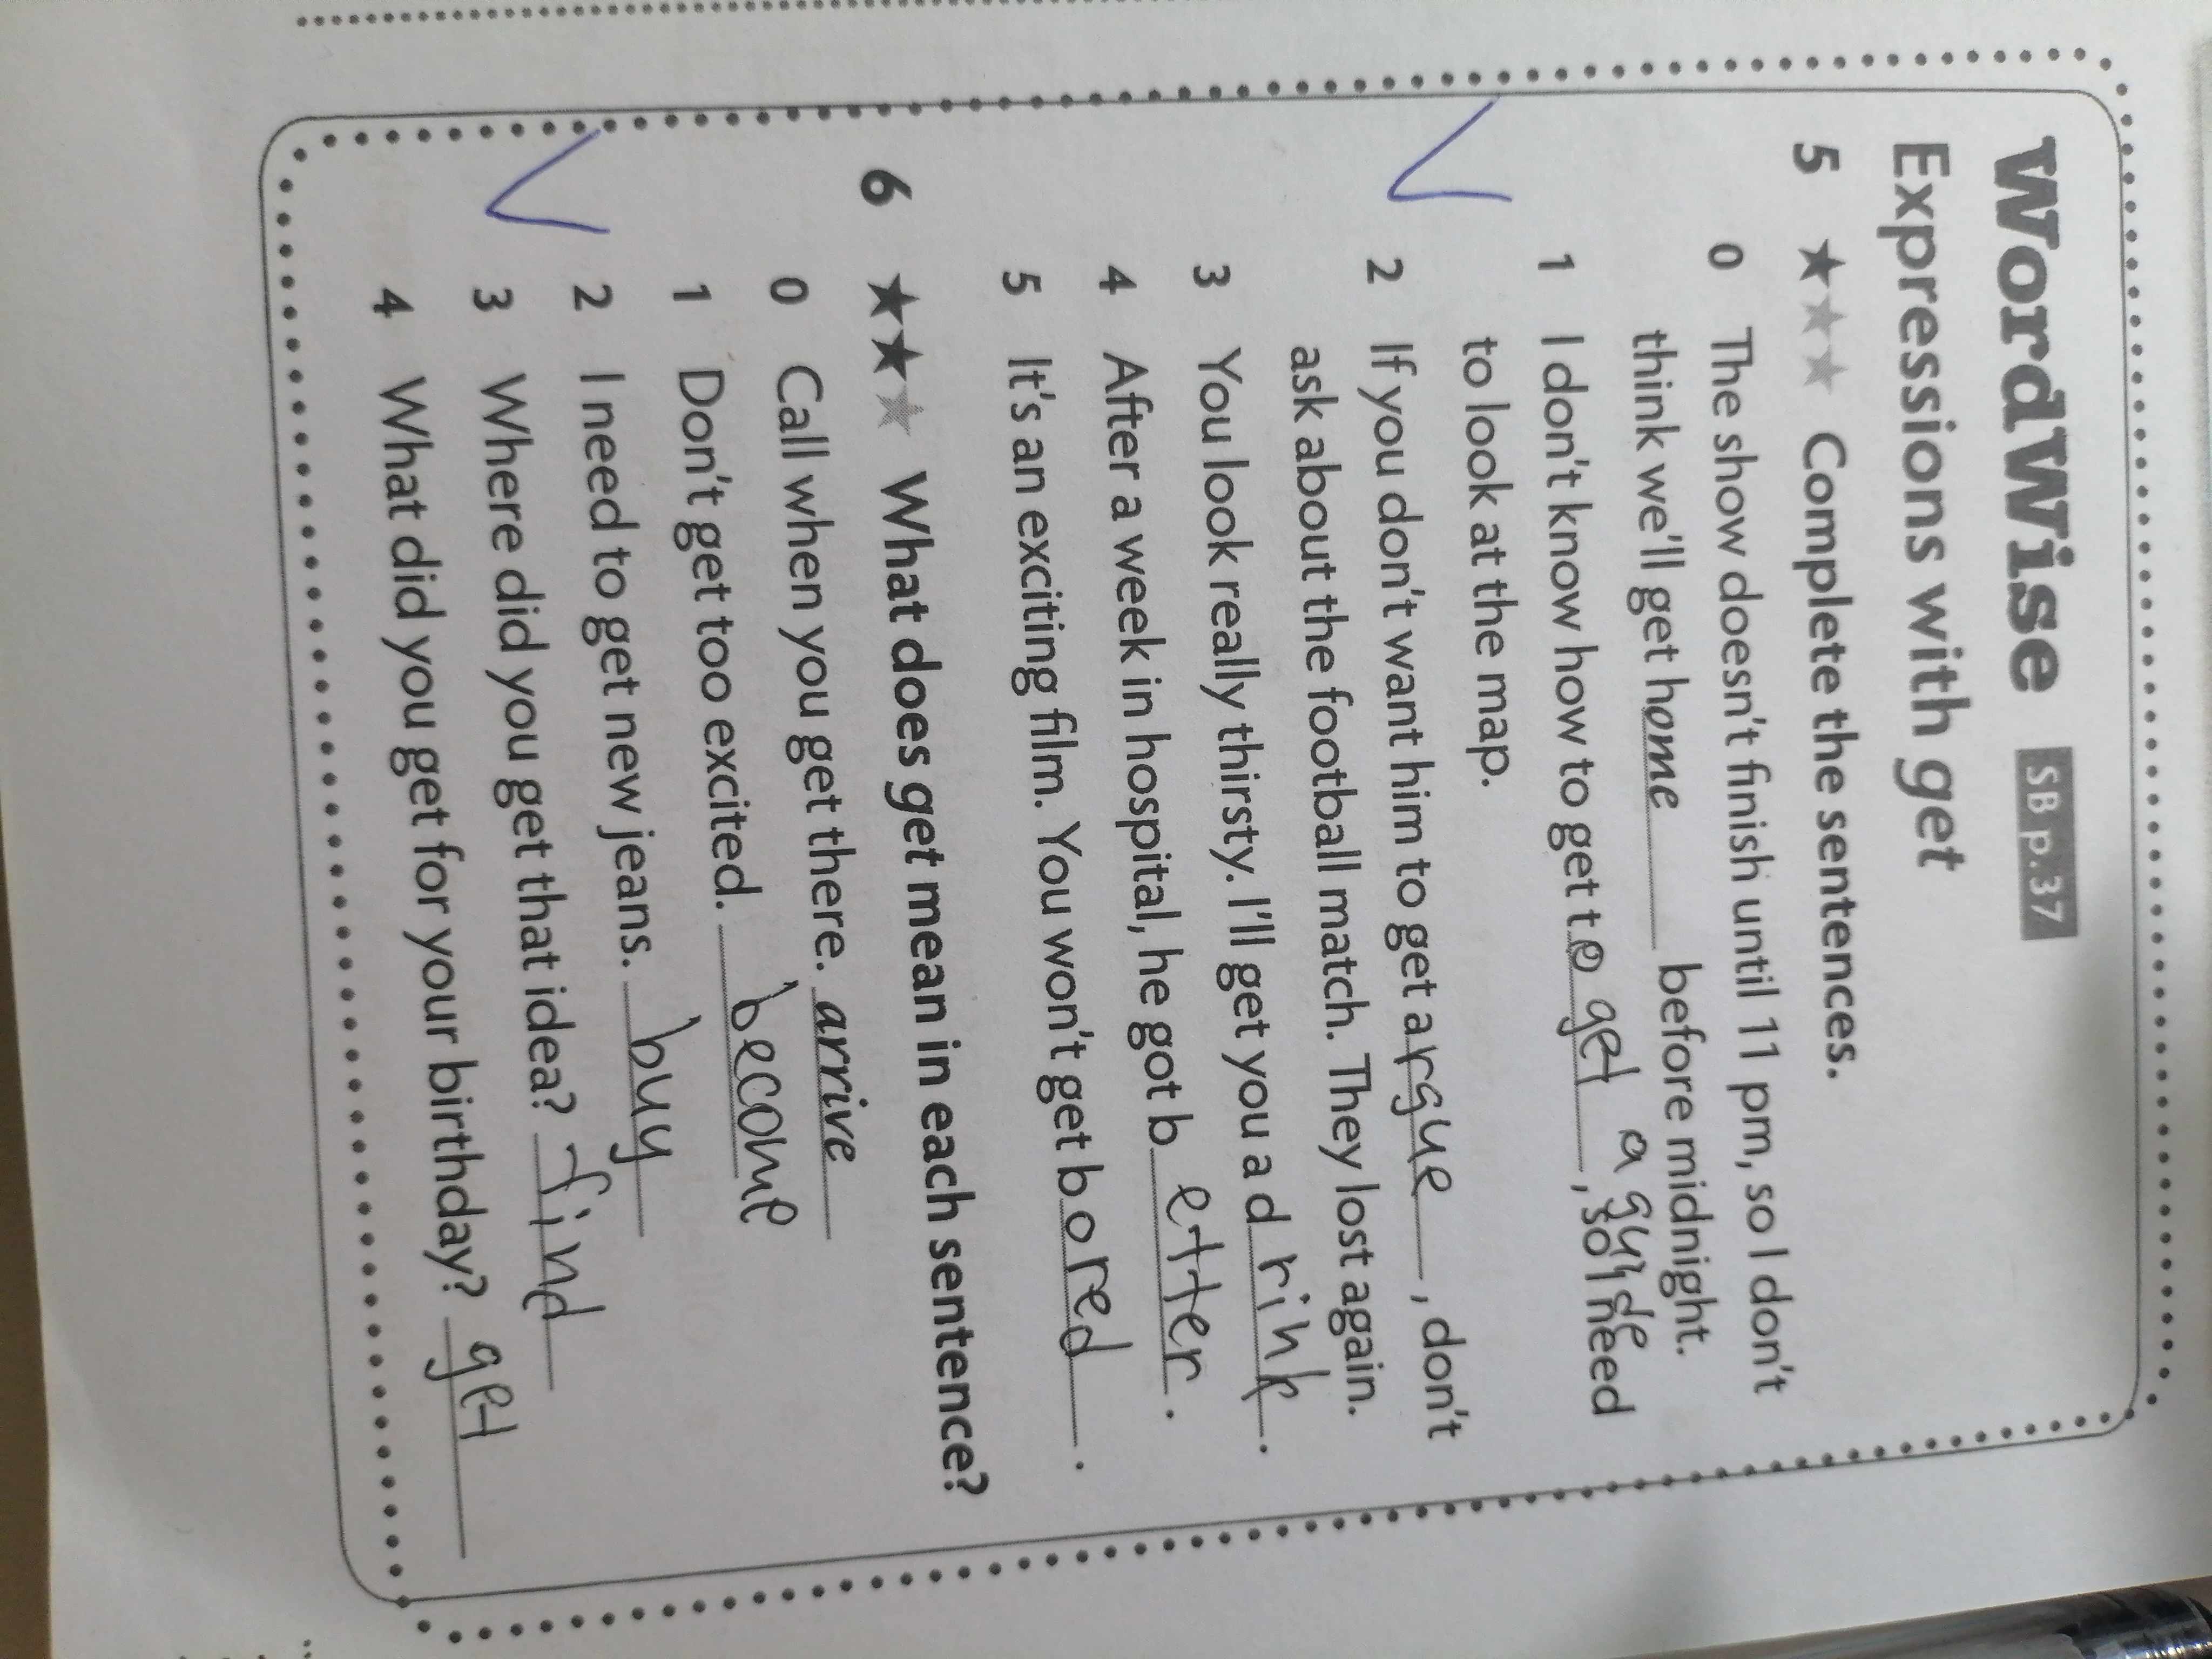 WordWise SB p.37
Expressions with get
5 ★★★ Complete the sentences.
0 The show doesn't finish until 11 pm, so I don't
think we'll get home before midnight.
a guide
1 I don't know how to get to get, so I need
to look at the map.
2 If you don't want him to get argue, don't
ask about the football match. They lost again.
3 You look really thirsty. I'll get you a drink.
4 After a week in hospital, he got better.
5 It's an exciting film. You won't get bored.
6 ★★★ What does get mean in each sentence?
0 Call when you get there. arrive
1 Don't get too excited. become
2 I need to get new jeans. buy
3 Where did you get that idea? find
4 What did you get for your birthday? get